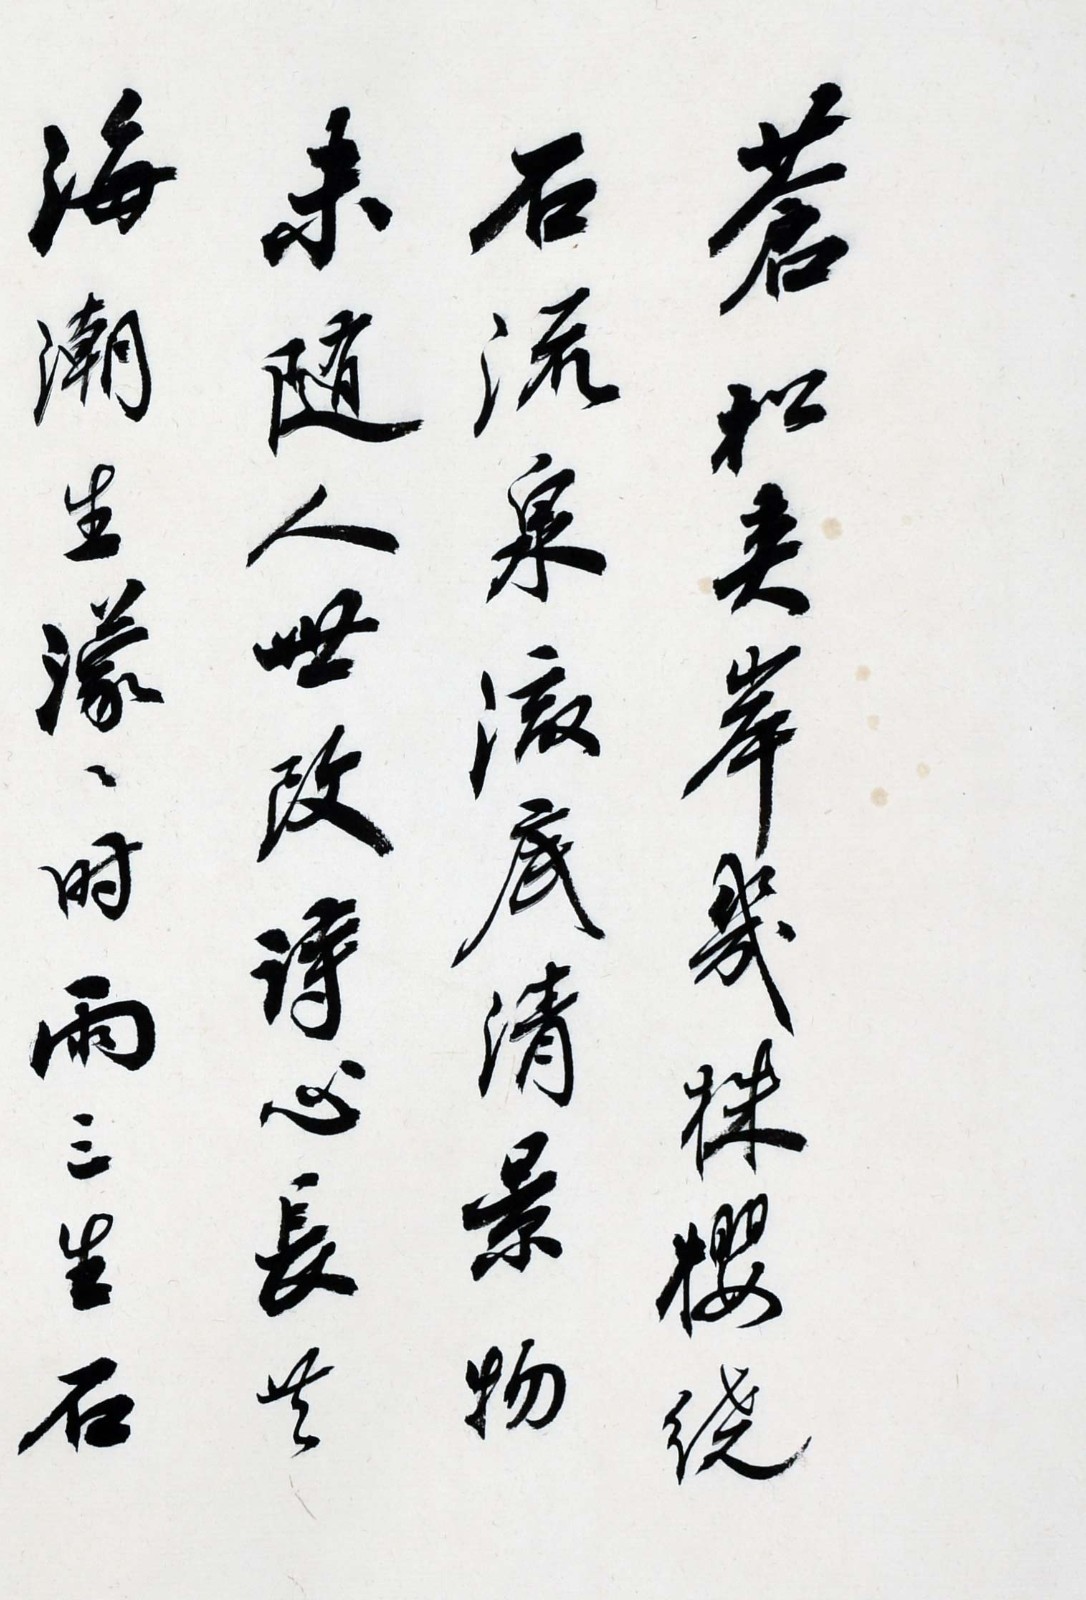 蒼松夾岸幾株櫻绕
石流泉澈底清景物
未随人世改詩心長共
海潮生濛〻时雨三生石